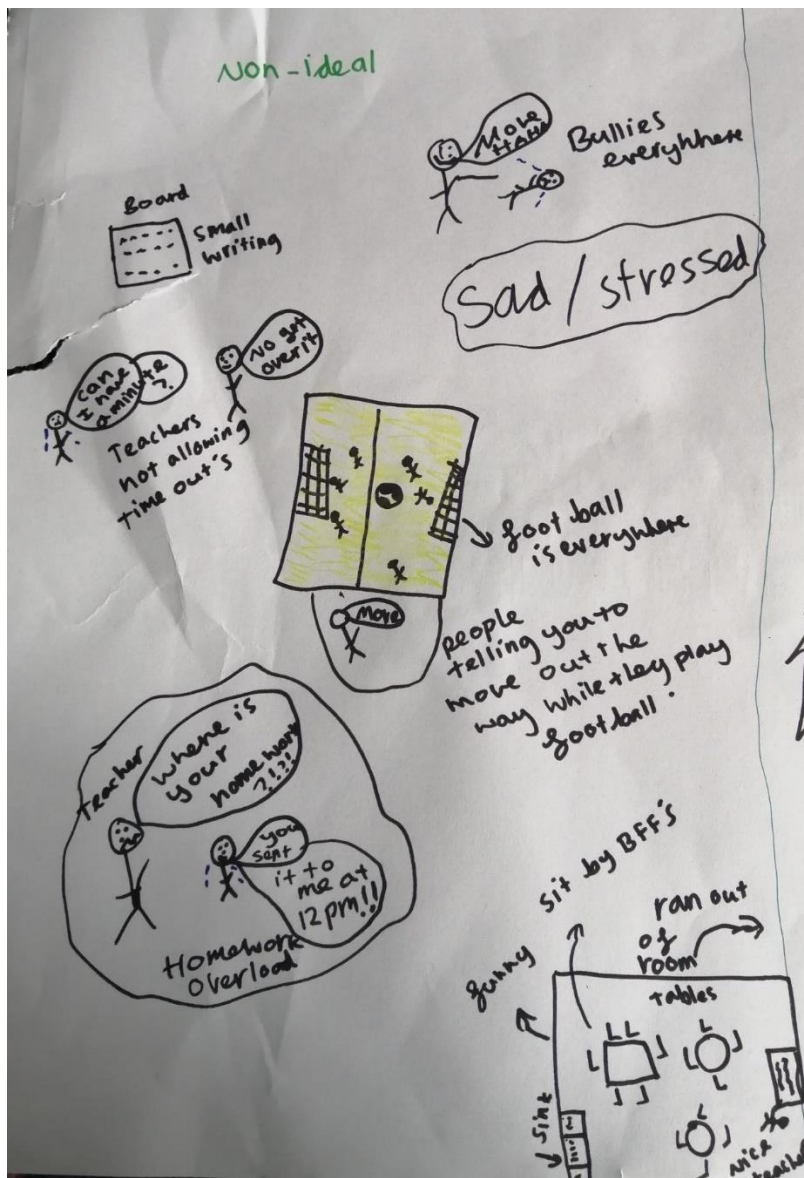 Non-ideal
Move
HAHA
Bullies
everywhere
Board
small
writing
Sad / stressed
can
I have
a minute
?
No get
over it
Teachers
not allowing
time out's
football
is everywhere
Move
people
telling you to
move out the
way while they play
football.
Teacher
where is
your
homework
?!?!
you
sent
it to
me at
12pm!!
Homework
overload
sit by BFF's
funny
ran out
of
room
tables
nice
teacher